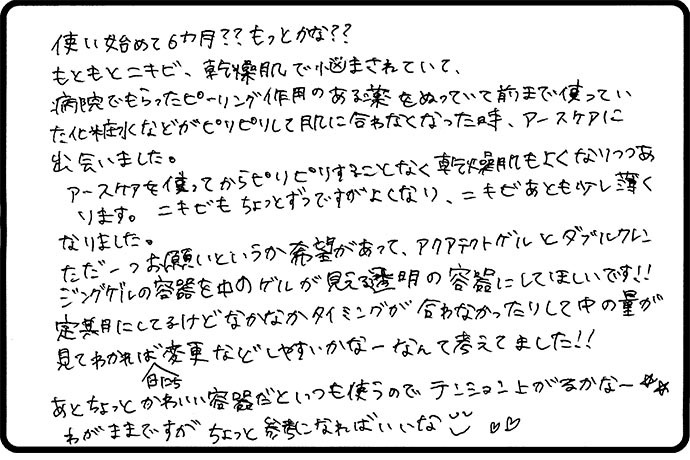 使い始めて6カ月??もっとかな??
もともとニキビ、乾燥肌で悩まされていて、
病院でもらったピーリング作用のある薬をぬっていて前まで使ってい
た化粧水などがピリピリして肌に合わなくなった時、アースケアに
出会いました。
アースケアを使ってからピリピリすることなく乾燥肌もよくなりつつあ
ります。ニキビもちょっとずつですがよくなり、ニキビあとも少し薄く
なりました。
ただ一つお願いというか希望があって、アクアテクトゲルとダブルクレン
ジングゲルの容器を中のゲルが見える透明の容器にしてほしいです!!
定期にしてるけどなかなかタイミングが合わなかったりして中の量が
見てわかれば変更などしやすいかなーなんて考えてました!!
日にち
あとちょっとかわいい容器だといつも使うのでテンション上がるかな〜
わがままですがちょっと参考になればいいな